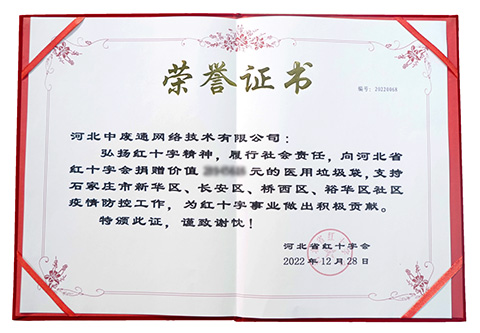 荣誉证书
编号：20220868
河北中废通网络技术有限公司：
弘扬红十字精神，履行社会责任，向河北省
红十字会捐赠价值 元的医用垃圾袋，支持
石家庄市新华区、长安区、桥西区、裕华区社区
疫情防控工作，为红十字事业做出积极贡献。
特颁此证，谨致谢忱！
河北省红十字会
2022年12月28日